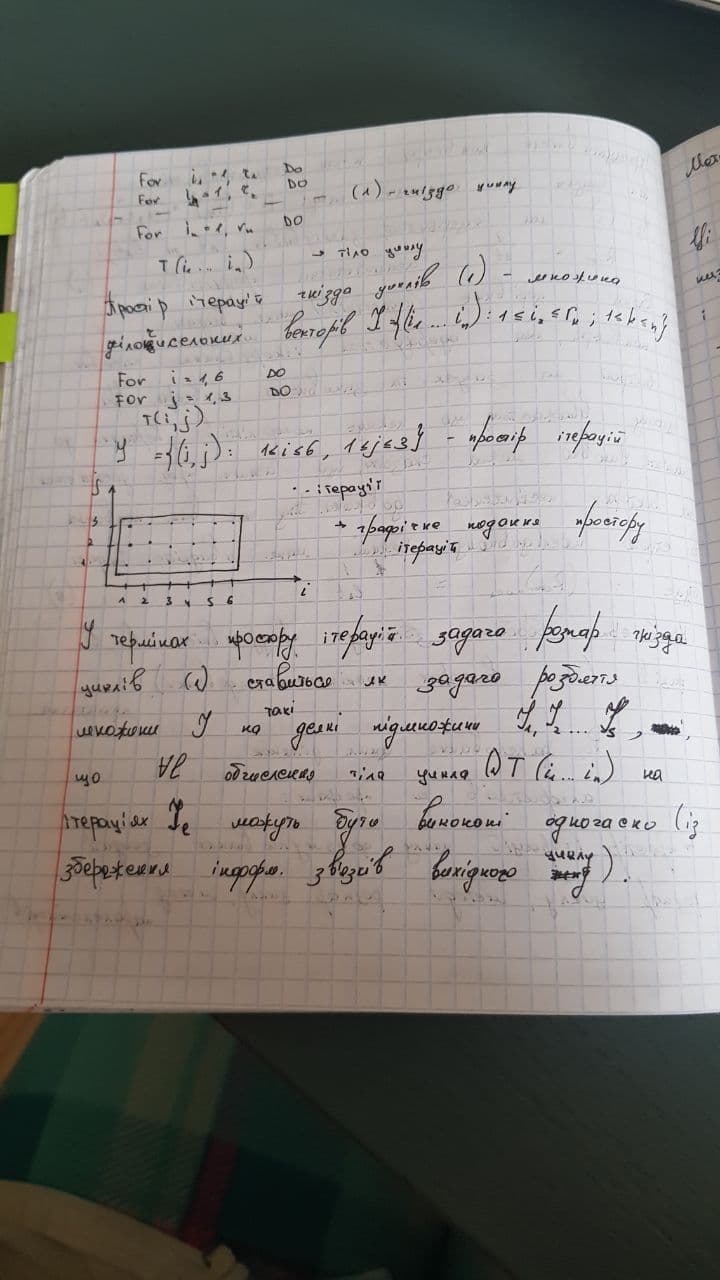 For i₁ = 1, r₁ DO
For i₂ = 1, r₂ DO
– – – – – (1) – гніздо циклу
For iₙ = 1, rₙ DO
T(i₁ ... iₙ) → тіло циклу
Простір ітерацій гнізда циклів (1) – множина
цілочисельних векторів I = {(i₁ ... iₙ) : 1 ≤ iₖ ≤ rₖ ; 1 ≤ k ≤ n}
For i = 1,6 DO
FOR j = 1,3 DO
T(i,j)
У = {(i,j) : 1 ≤ i ≤ 6, 1 ≤ j ≤ 3} – простір ітерацій
j
· - ітерації
3
→ графічне подання простору
2
ітерацій
1
i
1 2 3 4 5 6
У термінах простору ітерацій задача розпар гнізда
циклів (1) ставиться як задача розбиття
множини У на деякі такі підмножини У₁, У₂ ... Уₛ,
що ∀l обчислення тіла цикла (1) T (i₁ ... iₙ) на
ітераціях Уₑ можуть бути виконані одночасно (із
збереження інформ. звязків вихідного циклу).